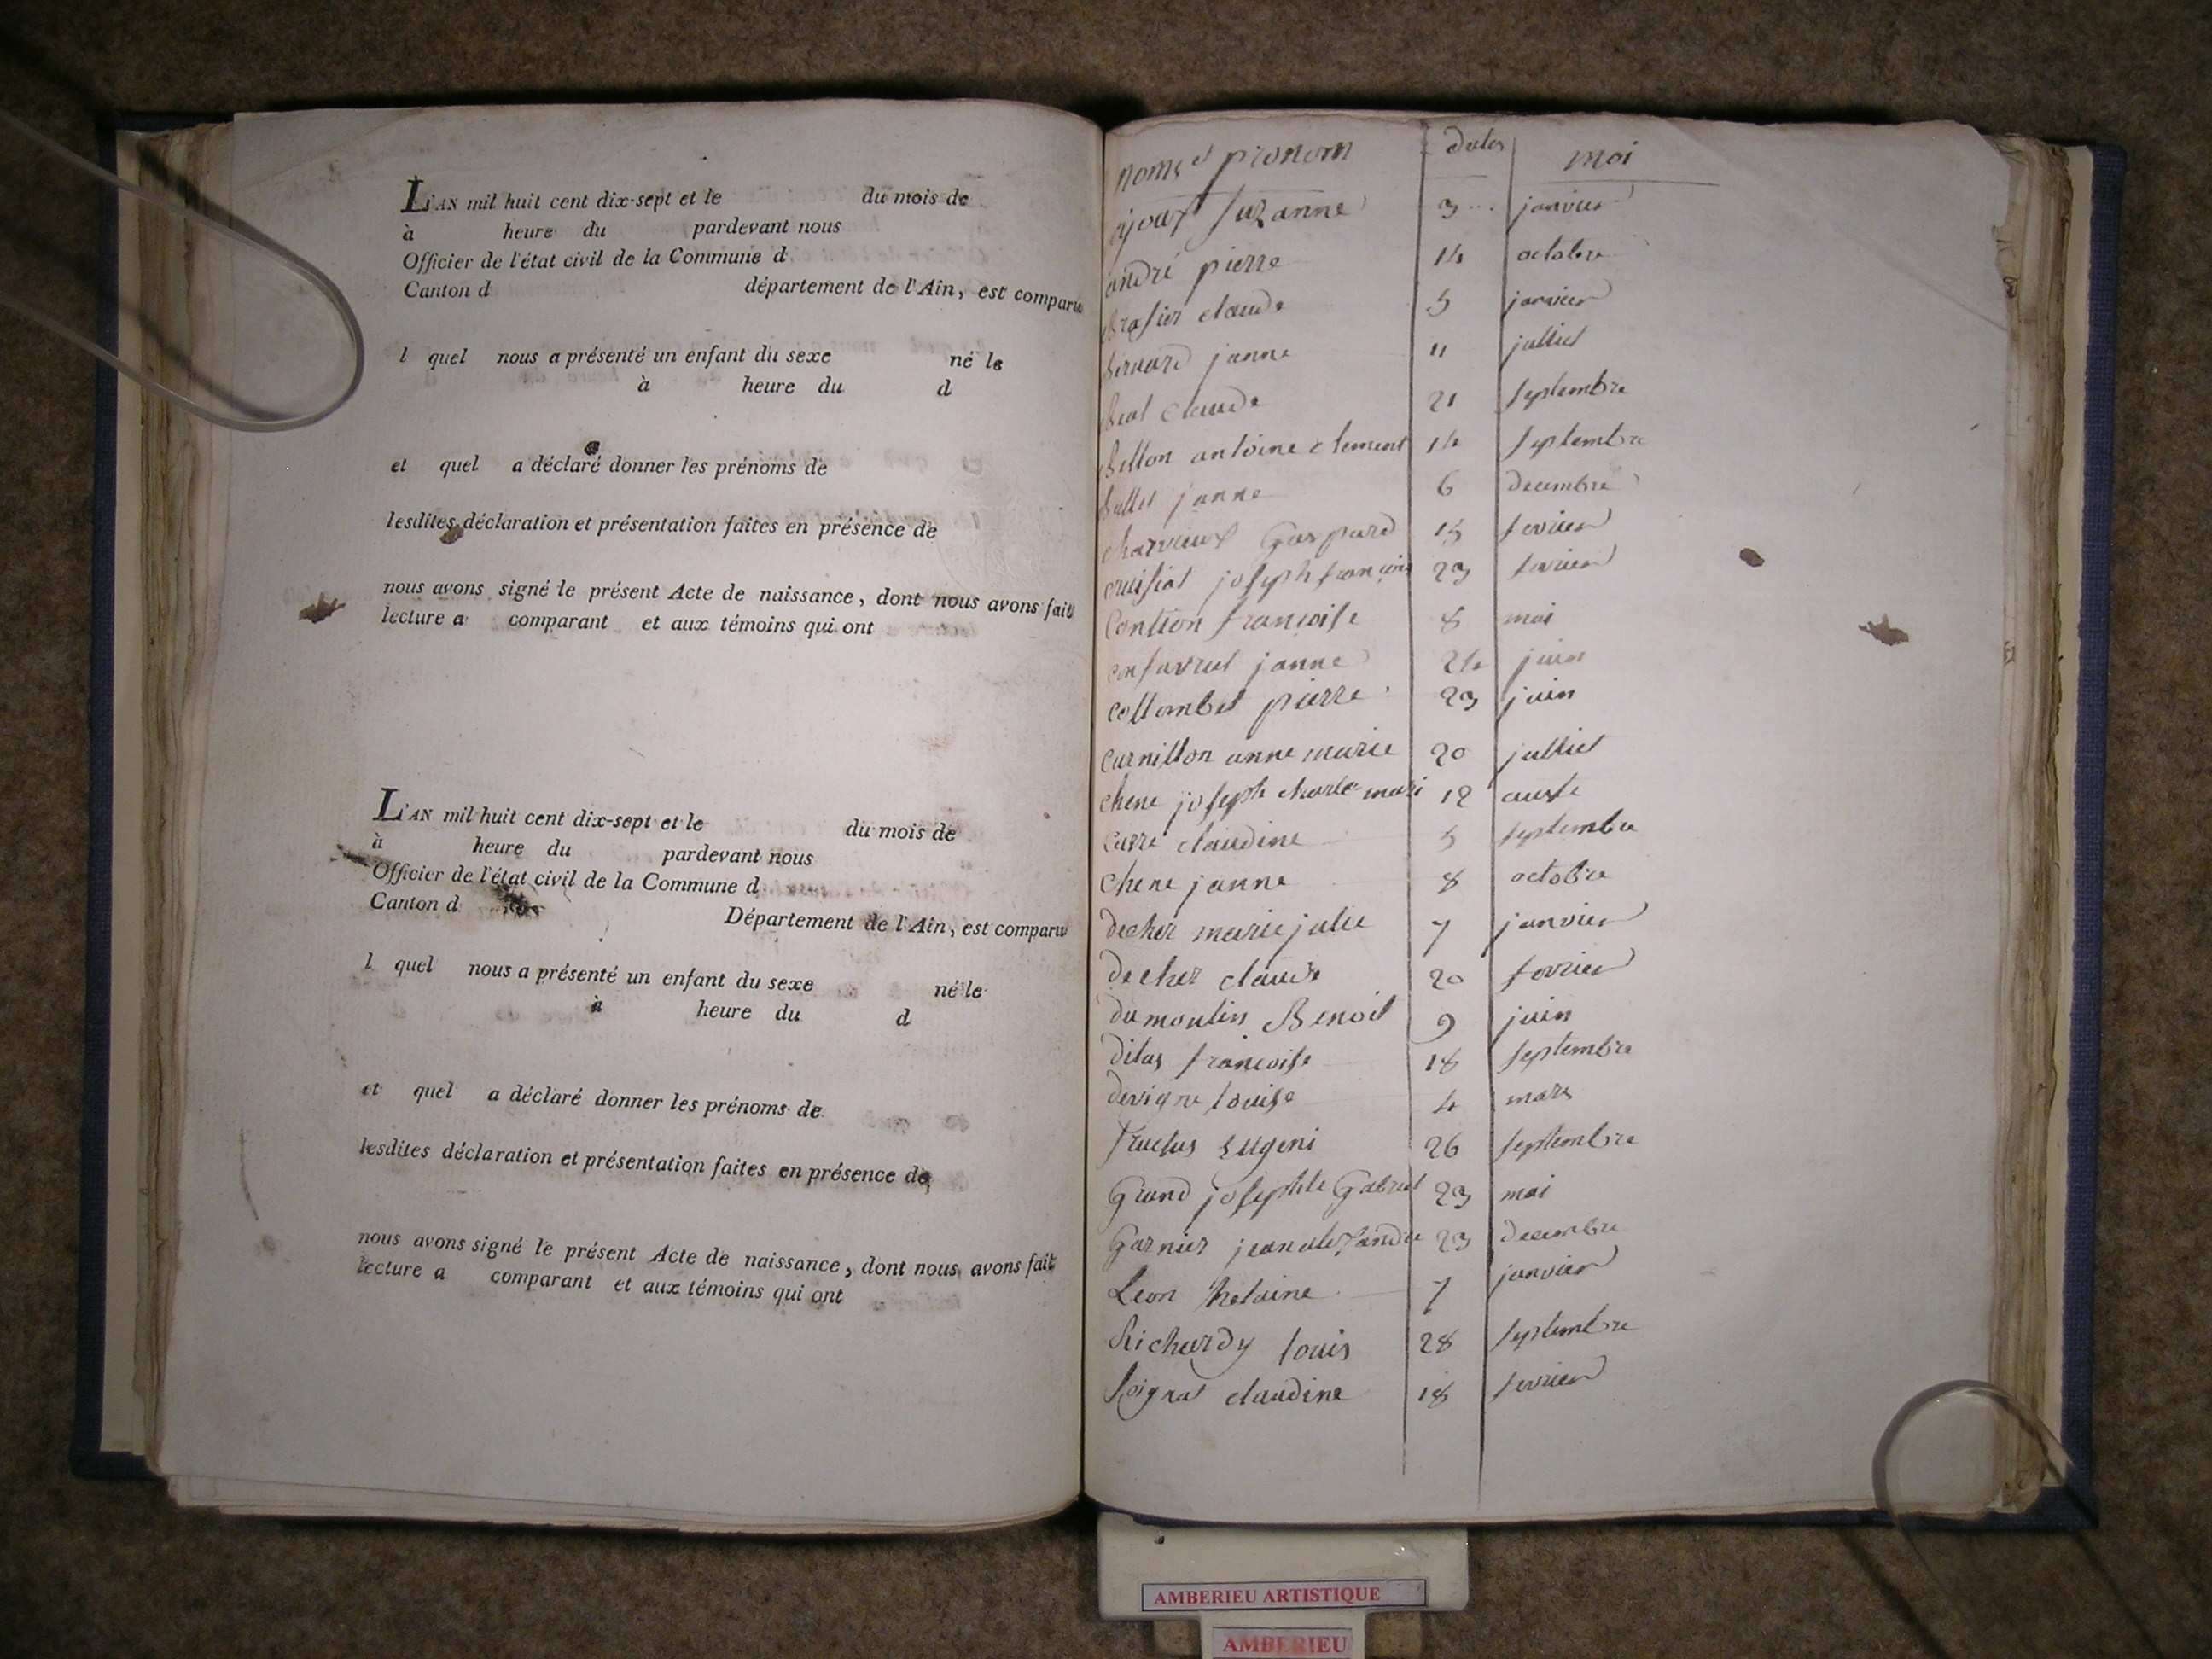 L'AN mil huit cent dix-sept et le du mois de
à heure du pardevant nous
Officier de l'état civil de la Commune d
Canton d département de l'Ain, est comparu
l quel nous a présenté un enfant du sexe né le
à heure du d
et quel a déclaré donner les prénoms de
lesdites déclaration et présentation faites en présence de
nous avons signé le présent Acte de naissance, dont nous avons fait
lecture a comparant et aux témoins qui ont
L'AN mil huit cent dix-sept et le du mois de
à heure du pardevant nous
Officier de l'état civil de la Commune d
Canton d Département de l'Ain, est comparu
l quel nous a présenté un enfant du sexe né le
à heure du d
et quel a déclaré donner les prénoms de
lesdites déclaration et présentation faites en présence de
nous avons signé le présent Acte de naissance, dont nous avons fait
lecture a comparant et aux témoins qui ont
noms et pronom dates moi
ajoux suzanne 3 janvier
andré pierre 14 octobre
Brasier claude 5 janvier
Bernard janne 11 julliet
claude 21 septembre
Bellon antoine clement 14 septembre
Bullet janne 6 decembre
charveux Gaspard 15 fevrier
cruisiat joseph françois 23 fevrier
Contion francoise 8 mai
janne 24 juin
collombet pierre 23 juin
curnillon anne marie 20 julliet
chene joseph charle mari 12 auste
carre claudine 5 septembre
chene janne 8 octobre
decher marie julie 7 janvier
decher claude 20 fevrier
dumoulin Benoit 9 juin
francoise 18 septembre
devigne louise 4 mars
fructus eugeni 26 septembre
Grand josephte Gabriel 23 mai
Garnier jean alexandre 23 decembre
Leon helaine 7 janvier
Richardy louis 28 septembre
Soignat claudine 18 fevrier
AMBERIEU ARTISTIQUE
AMBERIEU